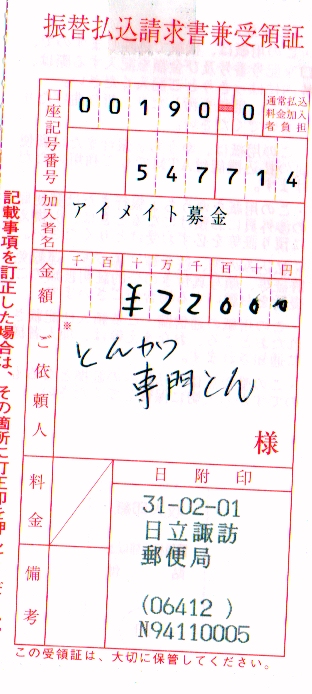 振替払込請求書兼受領証
口座記号番号
00190-0
通常払込
料金加入
者負担
547714
加入者名
アイメイト募金
金額
千百十万千百十円
¥22000
ご依頼人
※
とんかつ
専門とん
様
料金
日附印
31-02-01
日立諏訪
郵便局
(06412 )
N94110005
備考
この受領証は、大切に保管してください。
記載事項を訂正した場合は、その箇所に訂正印を押